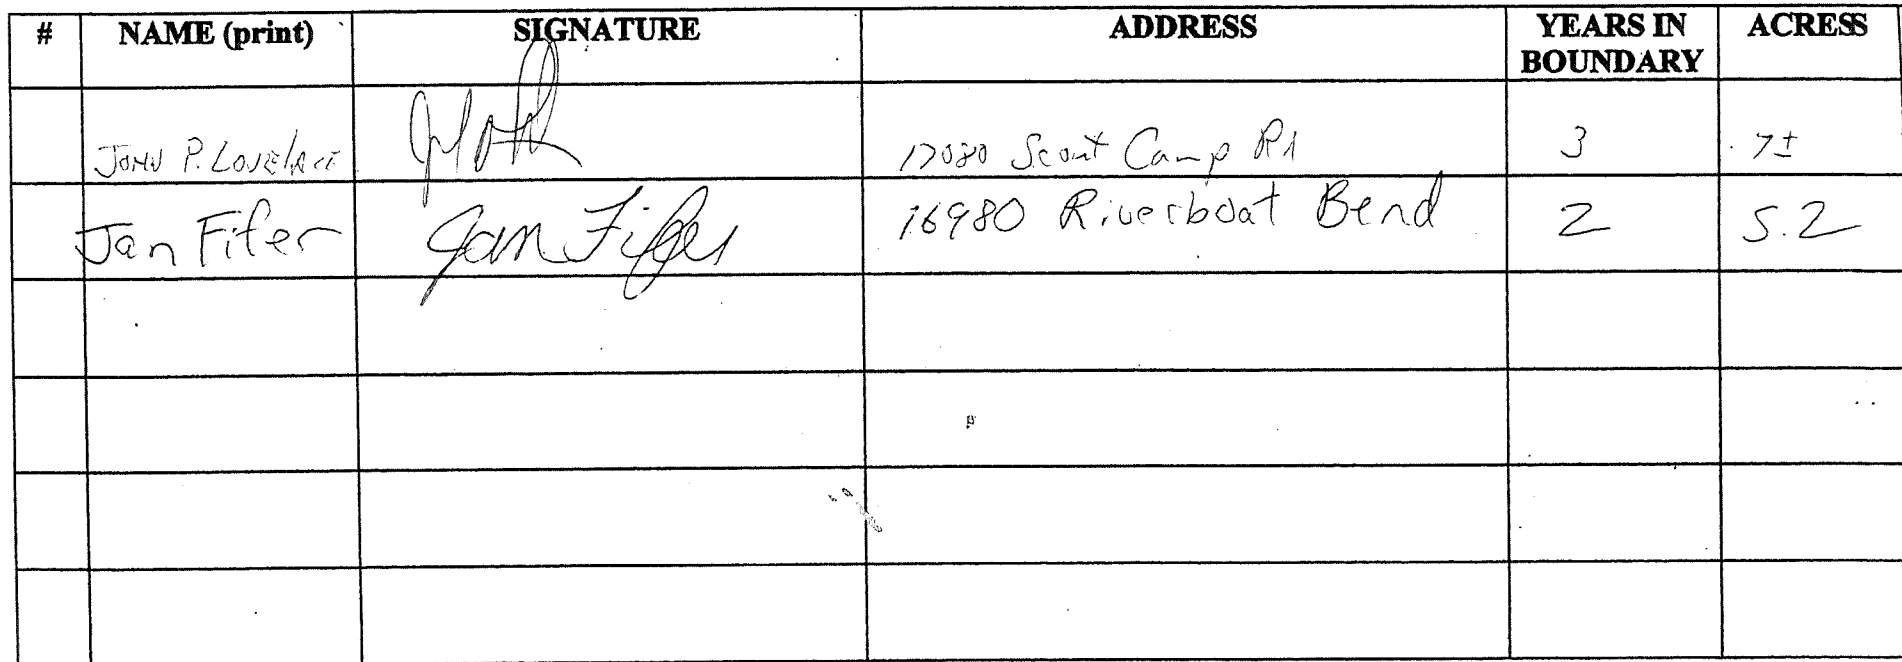 # NAME (print) SIGNATURE ADDRESS YEARS IN BOUNDARY ACRESS
JOHN P. LOVELACE 17080 Scout Camp Rd 3 7±
Jan Fifer Jan Fifer 16980 Riverboat Bend 2 5.2